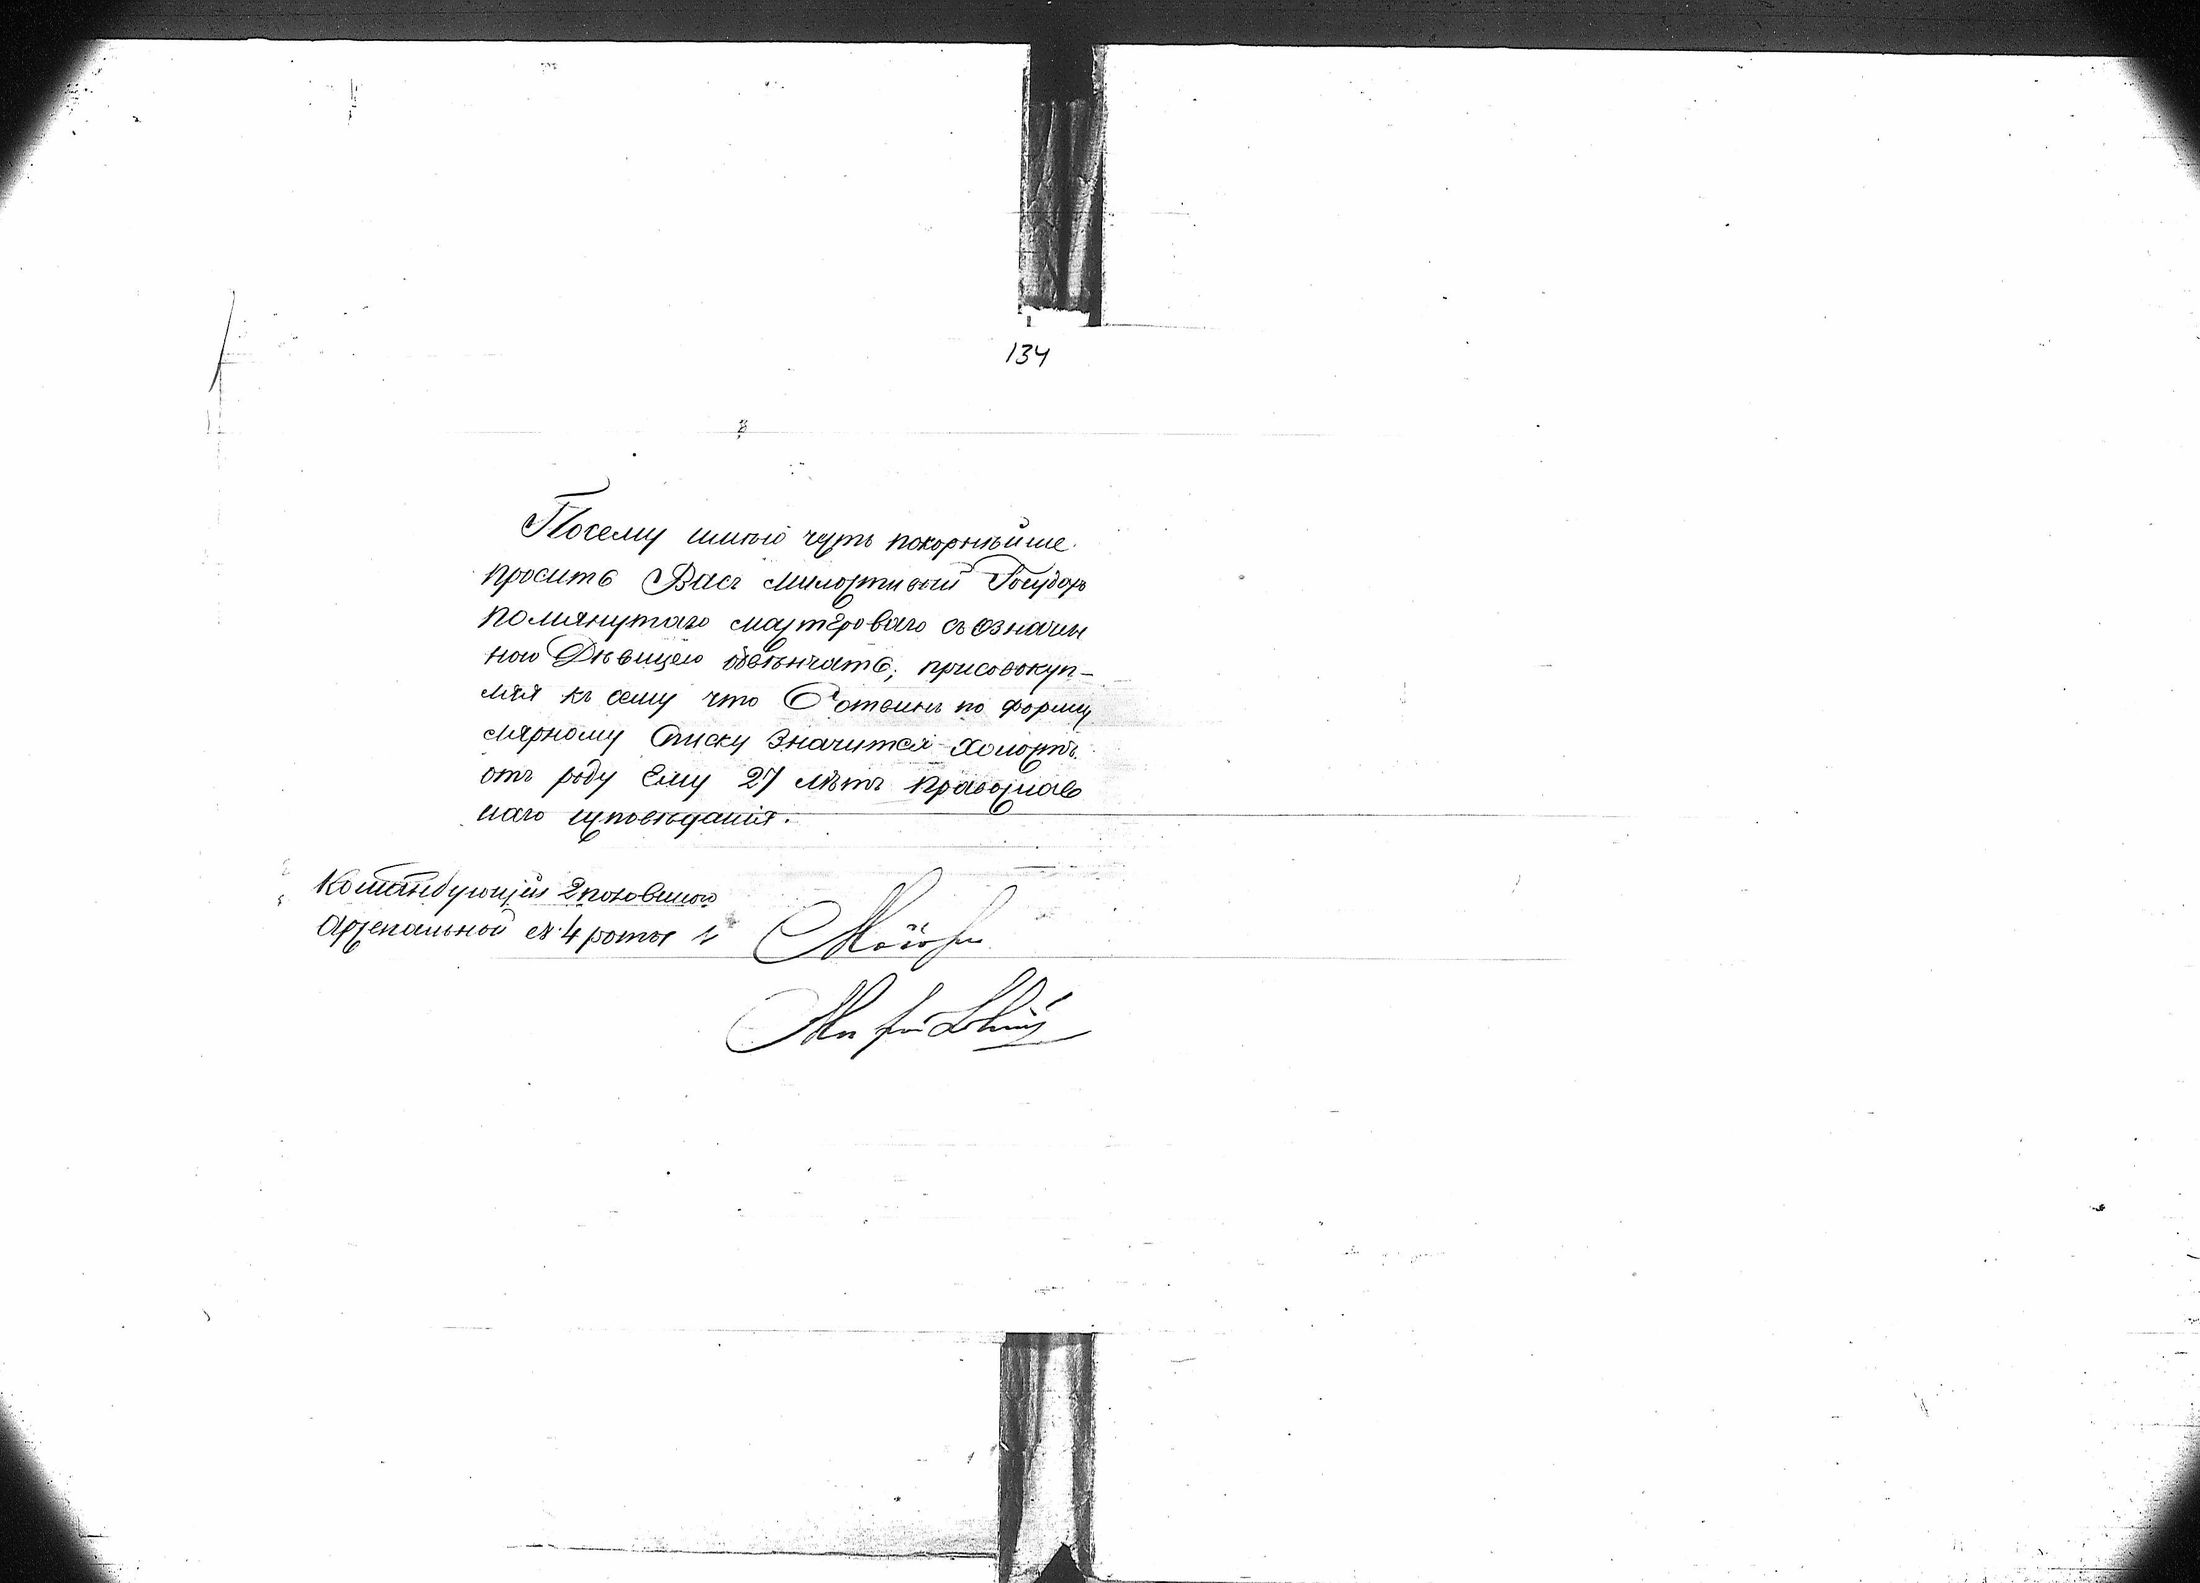 134
Посему имѣю честь покорнѣйше
просить Васъ милостивый Государь
помянутаго мастероваго съ означен
ною Дѣвицею обвѣнчать, присовокуп-
ляя къ сему что Сотвинъ по форму
лярному Списку Значится холостъ
отъ роду Ему 27 лѣтъ православ
наго исповѣданія.
Командующій 2 половиною
Арсенальной № 4 роты
Маіоръ